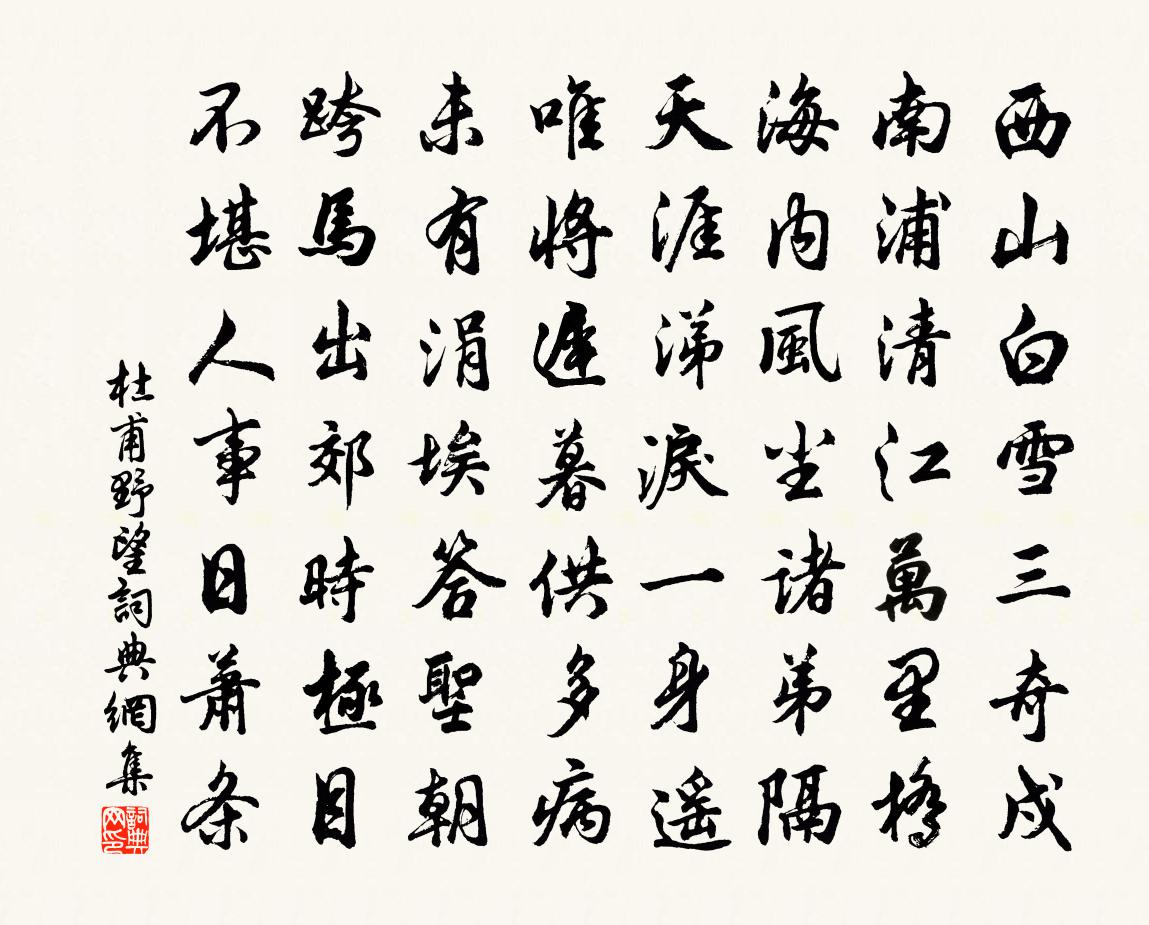 西山白雪三奇戍
南浦清江萬里橋
海內風尘諸弟隔
天涯涕淚一身遥
唯將遲暮供多病
未有涓埃答聖朝
跨馬出郊時極目
不堪人事日蕭条
杜甫野望詞典網集
詞典网印